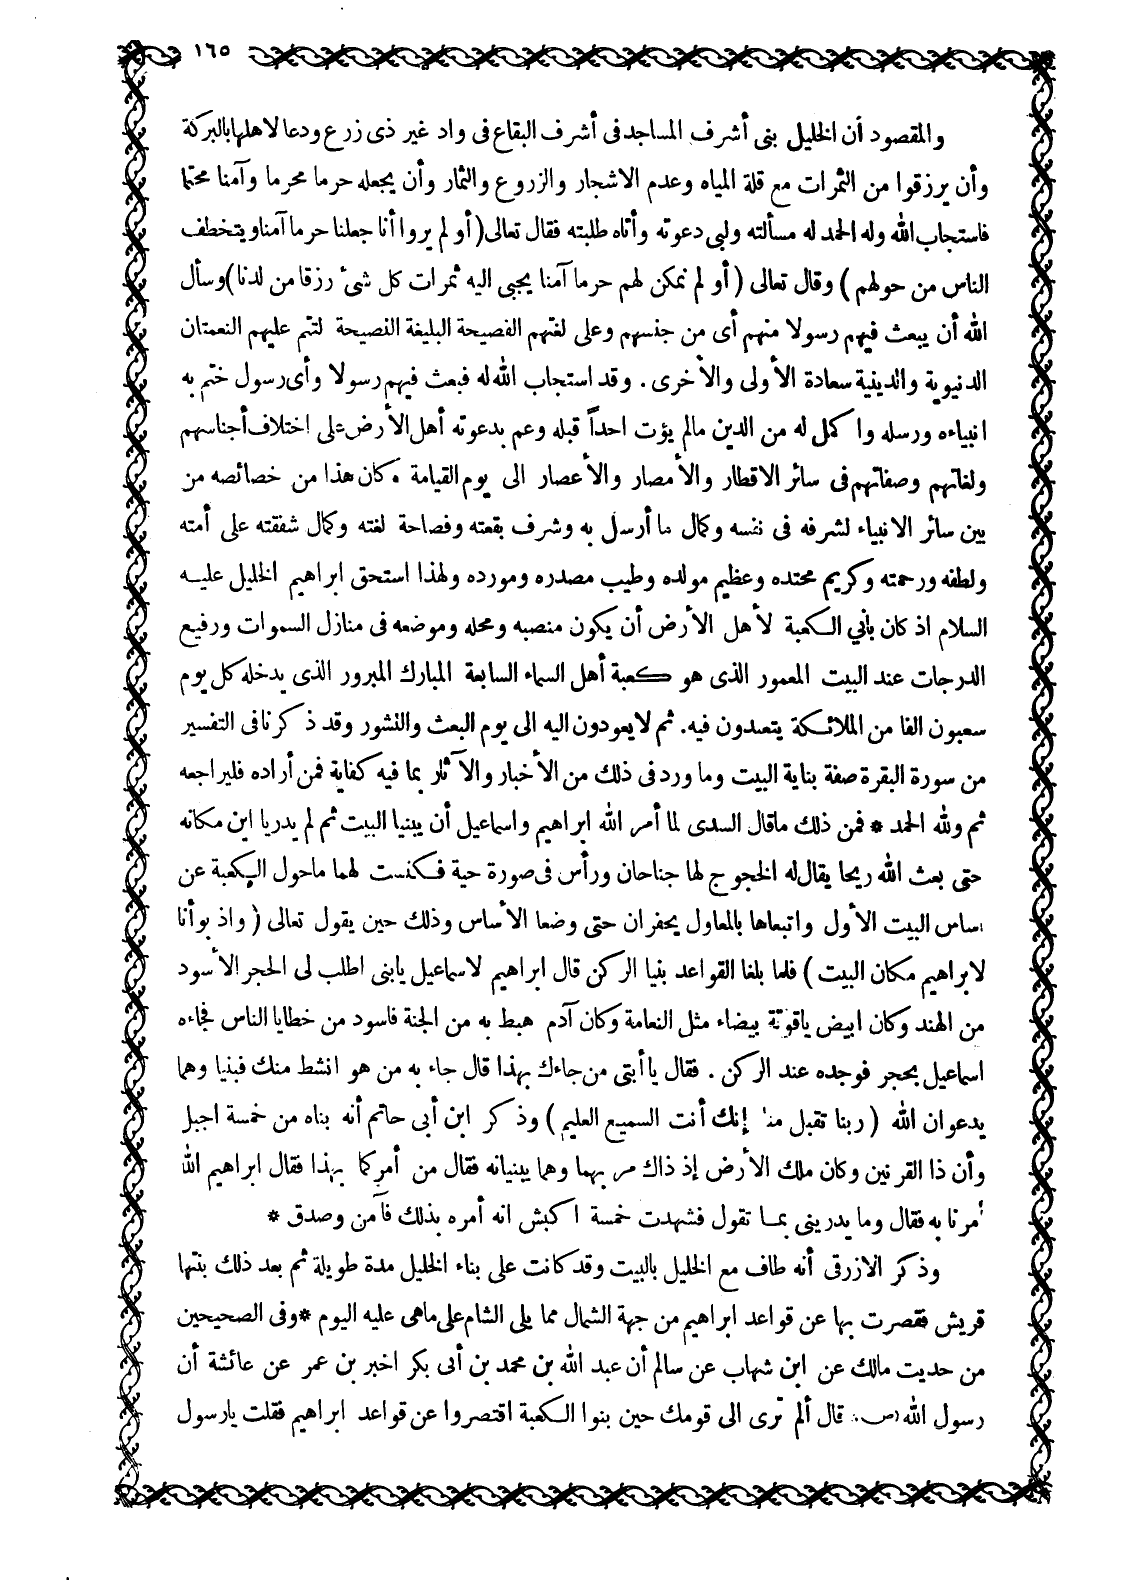 ١٦٥
والمقصود أن الخليل بنى أشرف المساجد فى أشرف البقاع فى واد غير ذى زرع ودعا لاهلها بالبركة
وأن يرزقوا من الثمرات مع قلة المياه وعدم الاشجار والزروع والثمار وأن يجعله حرما محرما وآمنا محتما
فاستجاب الله وله الحمد له مسألته ولبى دعوته وأتاه طلبته فقال تعالى ( أو لم يروا أنا جعلنا حرما آمنا ويتخطف
الناس من حولهم ) وقال تعالى ( أو لم نمكن لهم حرما آمنا يجبى اليه ثمرات كل شئ رزقا من لدنا ) وسأل
الله أن يبعث فيهم رسولا منهم أى من جنسهم وعلى لغتهم الفصيحة البليغة النصيحة لتتم عليهم النعمتان
الدنيوية والدينية سعادة الأولى والأخرى . وقد استجاب الله له فبعث فيهم رسولا وأى رسول ختم به
انبياءه ورسله واكمل له من الدين مالم يؤت احداً قبله وعم بدعوته أهل الأرض على اختلاف أجناسهم
ولغاتهم وصفاتهم فى سائر الاقطار والأمصار والأعصار الى يوم القيامة . كان هذا من خصائصه من
بين سائر الانبياء لشرفه فى نفسه وكمال ما أرسل به وشرف بقعته وفصاحة لغته وكمال شفقته على أمته
ولطفه ورحمته وكريم محتده وعظيم مولده وطيب مصدره ومورده ولهذا استحق ابراهيم الخليل عليه
السلام اذ كان بانى الكعبة لأهل الأرض أن يكون منصبه ومحله وموضعه فى منازل السموات ورفيع
الدرجات عند البيت المعمور الذى هو كعبة أهل السماء السابعة المبارك المبرور الذى يدخله كل يوم
سبعون الفا من الملائكة يتعبدون فيه . ثم لا يعودون اليه الى يوم البعث والنشور وقد ذكرنا فى التفسير
من سورة البقرة صفة بناية البيت وما ورد فى ذلك من الأخبار والآثار بما فيه كفاية فمن أراده فليراجعه
ثم ولله الحمد * فمن ذلك ماقال السدى لما أمر الله ابراهيم واسماعيل أن يبنيا البيت ثم لم يدريا اين مكانه
حتى بعث الله ريحا يقال له الخجوج لها جناحان ورأس فى صورة حية فكنست لهما ماحول الكعبة عن
اساس البيت الأول واتبعاها بالمعاول يحفران حتى وضعا الأساس وذلك حين يقول تعالى ( واذ بوأنا
لابراهيم مكان البيت ) فلما بلغا القواعد بنيا الركن قال ابراهيم لاسماعيل يابنى اطلب لى الحجر الأسود
من الهند وكان ابيض ياقوتة بيضاء مثل النعامة وكان آدم هبط به من الجنة فاسود من خطايا الناس فجاءه
اسماعيل بحجر فوجده عند الركن . فقال يا أبتى من جاءك بهذا قال جاء به من هو انشط منك فبنيا وهما
يدعوان الله ( ربنا تقبل منا إنك أنت السميع العليم ) وذكر ابن أبى حاتم أنه بناه من خمسة اجبل
وأن ذا القرنين وكان ملك الأرض إذ ذاك مر بهما وهما يبنيانه فقال من أمركما بهذا فقال ابراهيم الله
أمرنا به فقال وما يدرينى بما تقول فشهدت خمسة اكبش انه أمره بذلك فآمن وصدق *
وذكر الازرقى أنه طاف مع الخليل بالبيت وقد كانت على بناء الخليل مدة طويلة ثم بعد ذلك بنتها
قريش فقصرت بها عن قواعد ابراهيم من جهة الشمال مما يلى الشام على ماهى عليه اليوم * وفى الصحيحين
من حديث مالك عن ابن شهاب عن سالم أن عبد الله بن محمد بن أبى بكر اخبر بن عمر عن عائشة أن
رسول الله (ص) قال ألم ترى الى قومك حين بنوا الكعبة اقتصروا عن قواعد ابراهيم فقلت يارسول